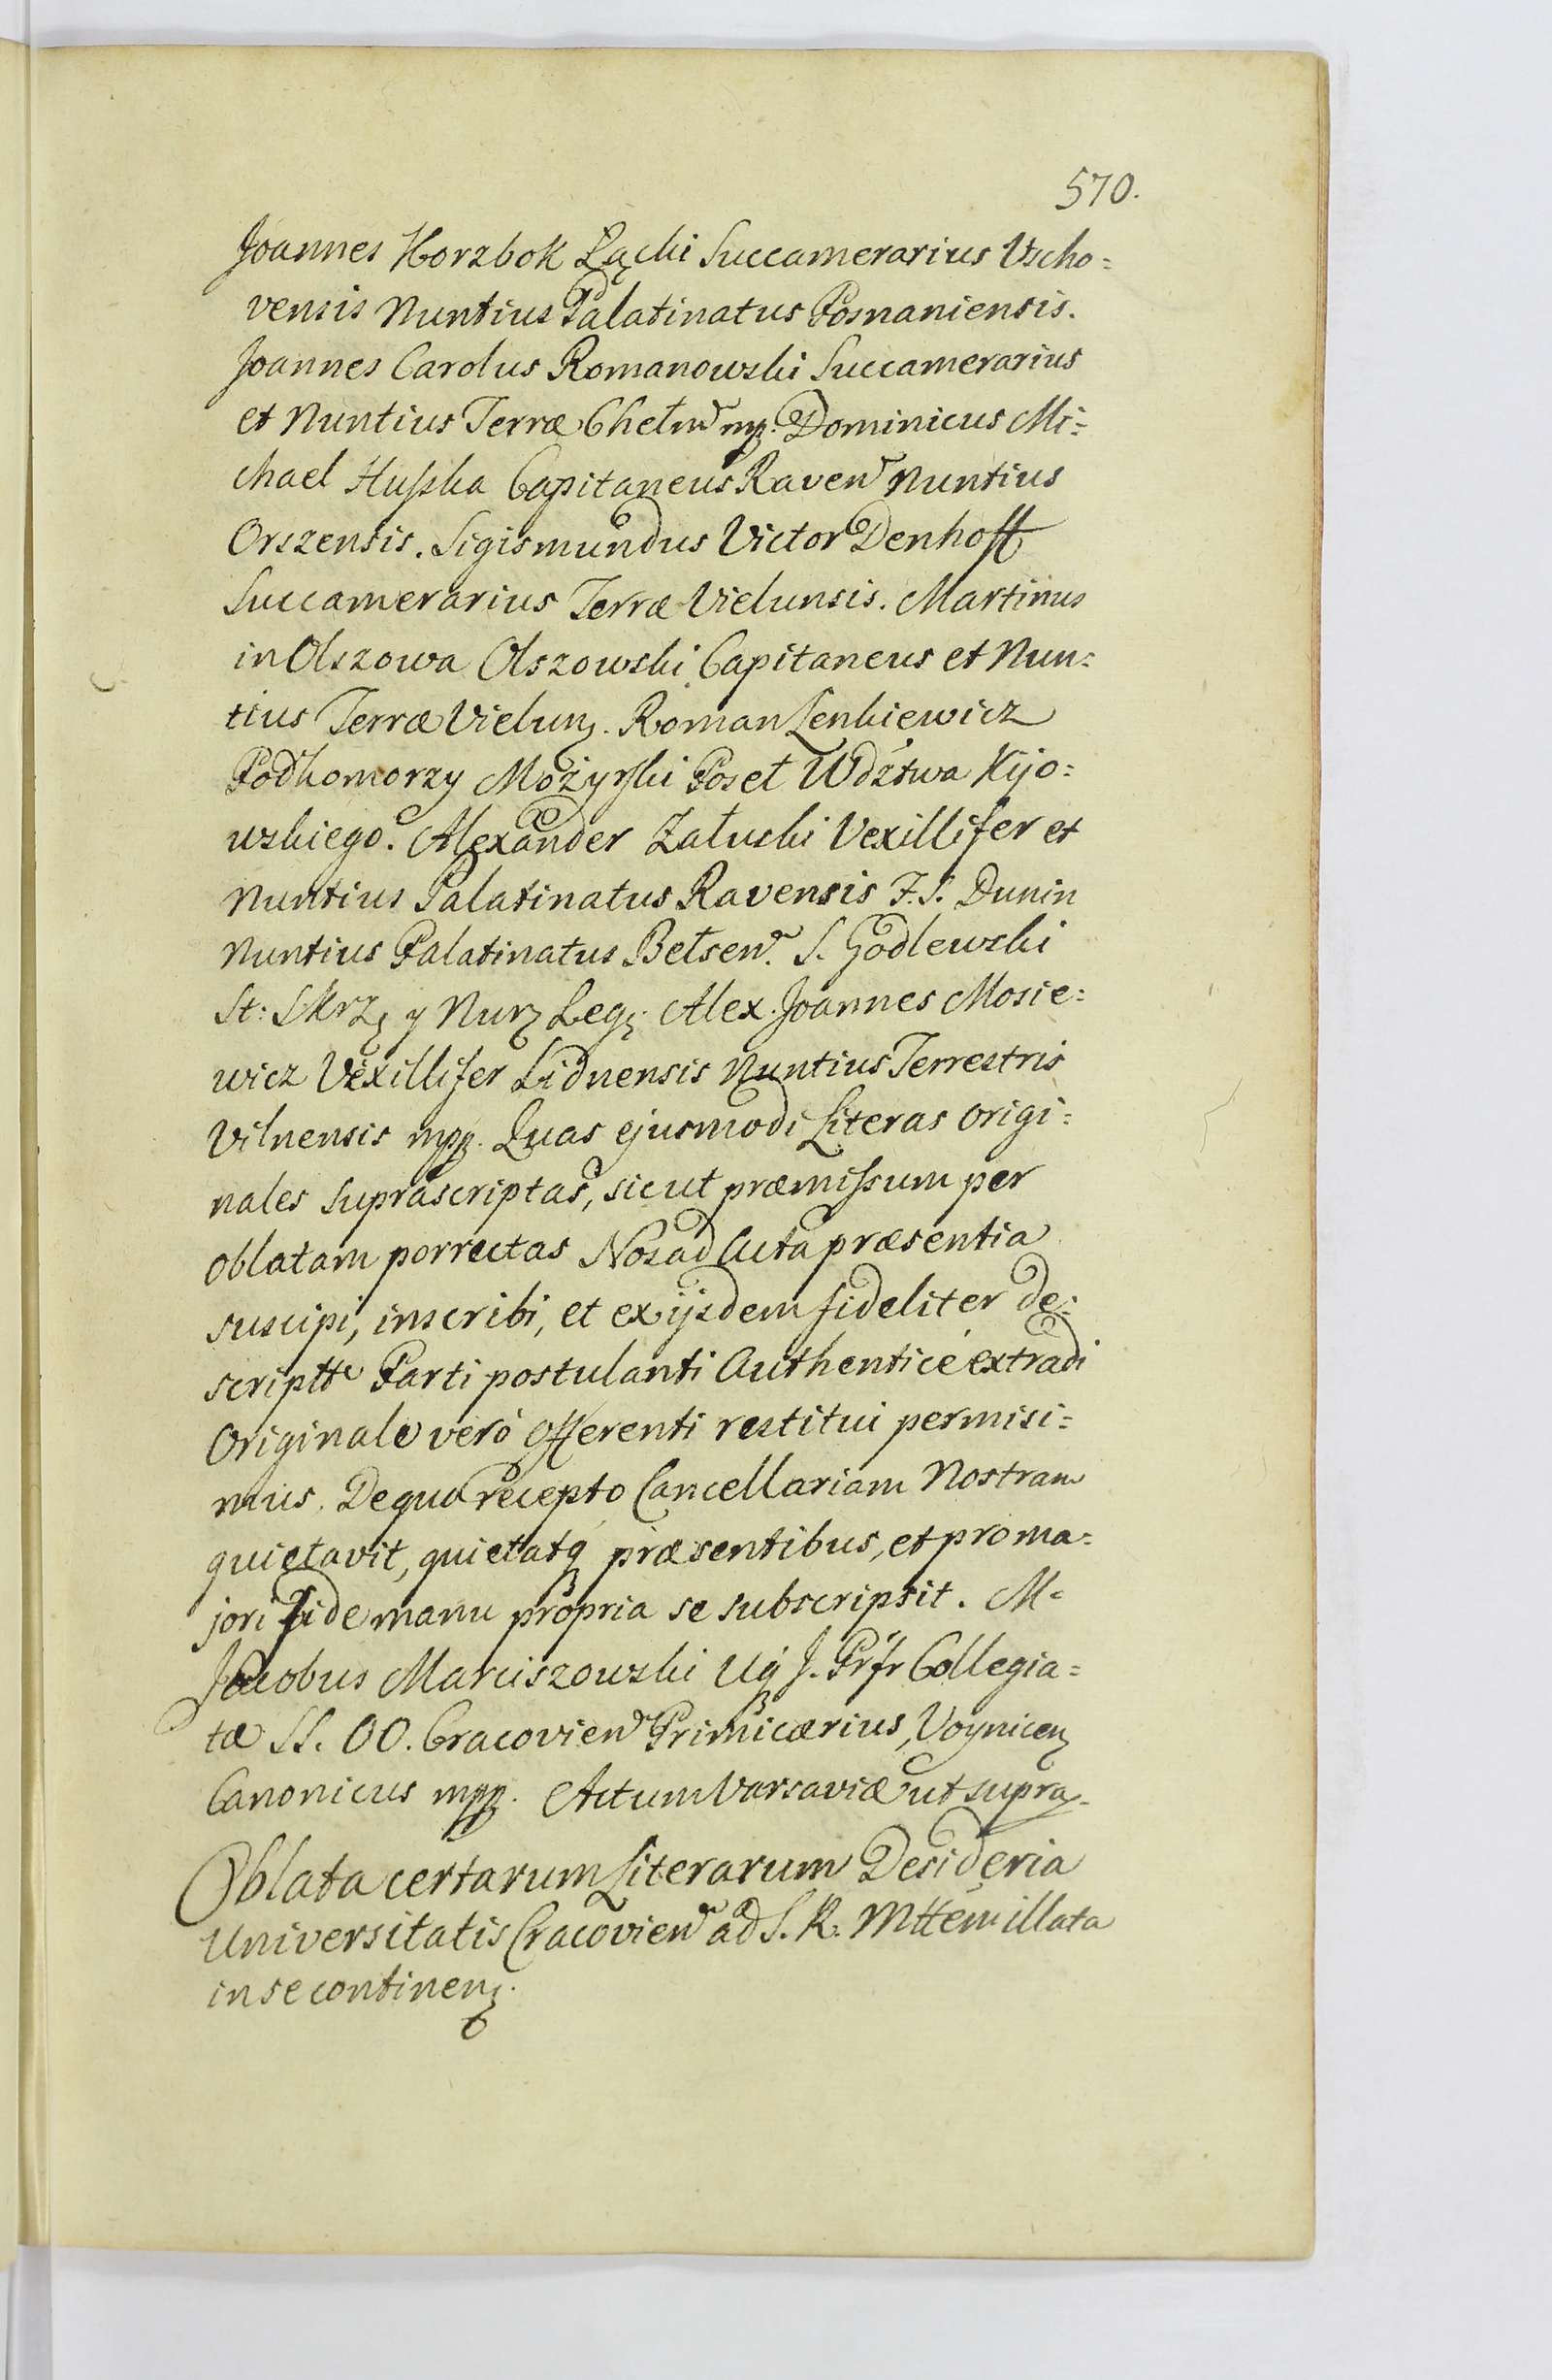 570.
Joannes Korzbok Łącki Succamerarius Vscho=
vensis Nuntius Palatinatus Posnaniensis.
Joannes Carolus Romanowski Succamerarius
et Nuntius Terræ Chełm mp. Dominicus Mi=
chael Hlußka Capitaneus Raven Nuntius
Orszensis. Sigismundus Victor Denhoff
Succamerarius Terræ Vielunsis. Martinus
in Olszowa Olszowski Capitaneus et Nun=
tius Terræ Vielun. Roman Jenkiewicz
Podkomorzy Możyrski Poseł Wdztwa Kijo=
wskiego. Alexander Załuski Vexillifer et
Nuntius Palatinatus Ravensis F. S. Dunin
Nuntius Palatinatus Bełsen. S. Godlewski
St: Skrz y Nur Leg. Alex. Joannes Mosie=
wicz Vexillifer Lidnensis Nuntius Terrestris
Vilnensis mpp. Quas ejusmodi Literas origi=
nales supráscriptas, sicut præmißum per
oblatam porrectas Nos ad Acta præsentia
suscipi, inscribi, et ex ijsdem fideliter de=
scriptt Parti postulanti Authenticè extradi
Originale verò offerenti restitui permisi=
mus. De quo recepto Cancellariam Nostram
quietavit, quietatq præsentibus, et pro ma=
jori fide manu propria se subscripsit. M.
Jacobus Marciszowski Uq J. Prfr Collegia=
tæ SS. OO. Cracovien Primicærius, Voynicen
Canonicus mpp. Actum Varsaviæ ut supra.
Oblata certarum Literarum Desideria
Universitatis Cracovien ad S. R. Mttem illata
in se continen.